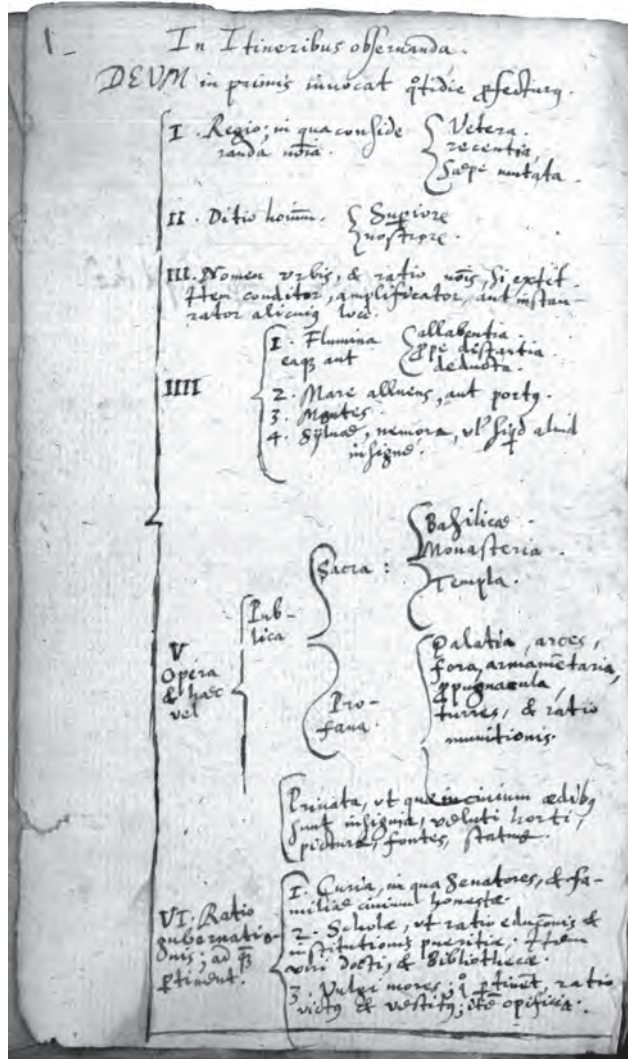 1_
In Itineribus obseruanda.
DEVM in primis inuocat qtidie pfecturq.
I. Regio; in qua conside
randa nōia.
Vetera.
recentia,
Saepe mutata.
II. Ditio hominū.
Supiore
nostrore.
III. Nomen vrbis, & ratio nōis, si extet.
Item conditor, amplificator, aut instau-
rator alicuiq loci.
IIII
1. Flumina
eaqȝ aut
allabentia.
ppe distantia
deducta.
2. Mare alluens, aut portq.
3. Montes.
4. Syluae, nemora, vl' siqd aliud
insigne.
V
Opera
& haec
vel
Pub-
lica
Sacra:
Basilicae.
Monasteria.
Templa.
Pro-
fana.
Palatia, arces,
fora, armamētaria,
ppugnacula,
turres, & ratio
munitionis.
Priuata, vt quae in ciuium aedibq
sunt insignia, veluti horti,
picturae, fontes, statuae.
VI. Ratio
gubernatio-
nis; ad qȝ
ptinent.
1. Curia, in qua Senatores, & fa-
miliae ciuium honestae.
2. Scholae, vt ratio educōnis &
institutionis pueritiae. Item
viri docti, & Bibliothecae.
3. Vulgi mores; qͦ ptinēt, ratio
victq & vestitq; itē opificia.